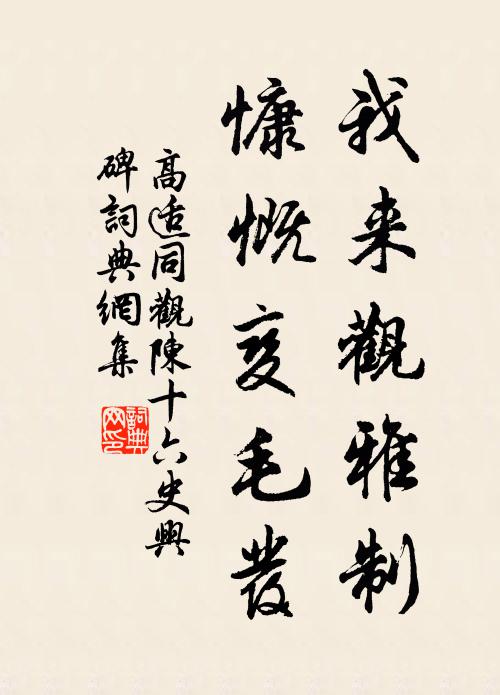 我来觀雅制
慷慨变毛發
高适同觀陳十六史興
碑詞典網集
詞典网印